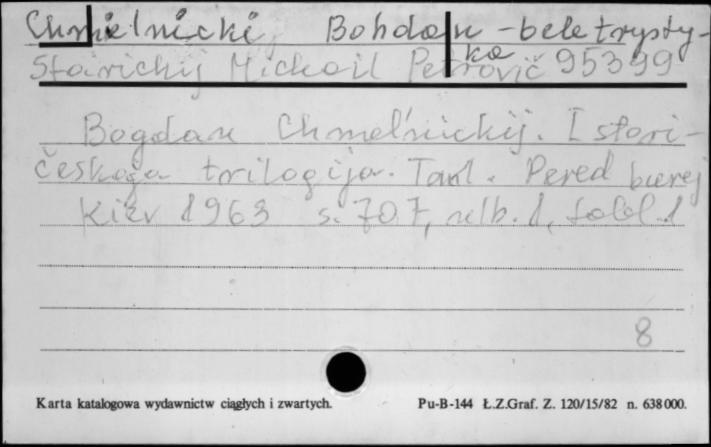 Chmielnicki, Bohdan - beletrysty-
ka
Starickij Michail Petrovič 95399
Bogdan Chmel'nickij. Istori-
českaja trilogija. Tom 1. Pered burej
Kiev 1963 s. 707, nlb. 1, tabl. 1
8
Karta katalogowa wydawnictw ciągłych i zwartych. Pu-B-144 Ł.Z.Graf. Z. 120/15/82 n. 638000.